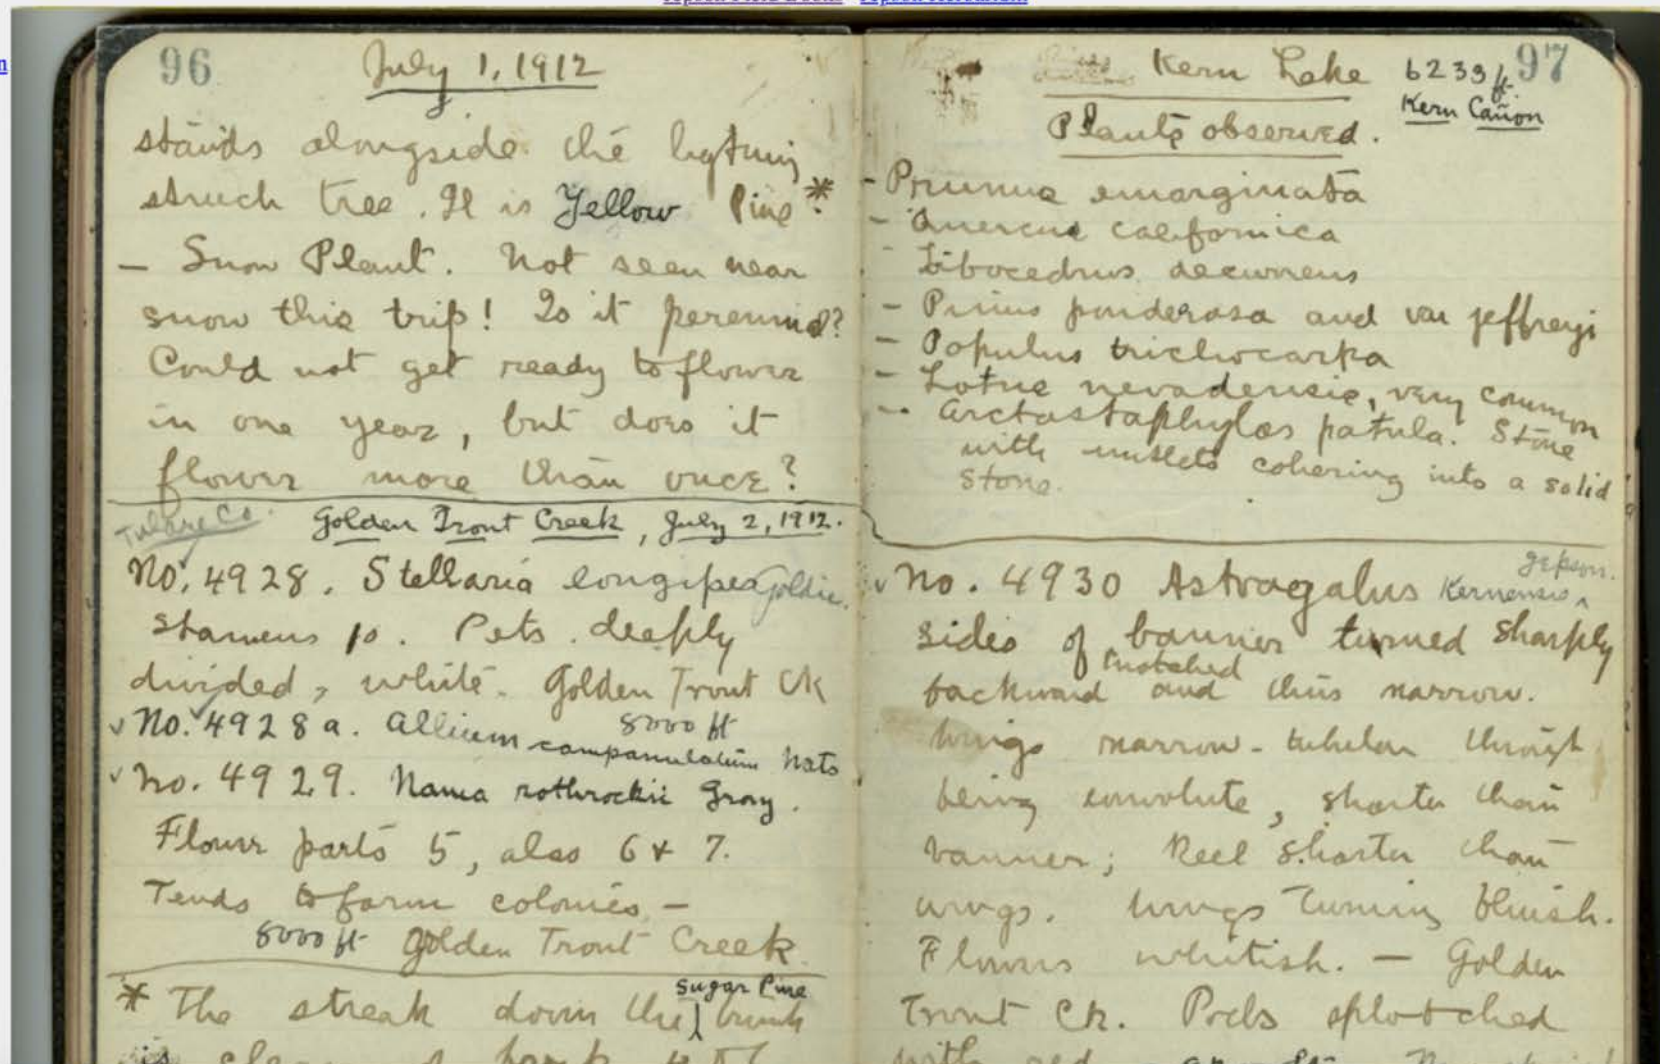 96
July 1, 1912
stands alongside the lightning
struck tree. It is Yellow Pine.*
– Snow Plant. Not seen near
snow this trip! Is it perennial?
Could not get ready to flower
in one year, but does it
flower more than once?
Tulare Co.
Golden Trout Creek, July 2, 1912.
No. 4928. Stellaria longipes Goldie.
Stamens 10. Pets. deeply
divided, white. Golden Trout Ck
8000 ft
No. 4928a. Allium campanulatum Wats
No. 4929. Nama rothrockii Gray.
Flower parts 5, also 6 & 7.
Tends to form colonies –
8000 ft Golden Trout Creek.
sugar Pine
* The streak down the trunk
97
Kern Lake 6239 ft.
Kern Cañon
Plants observed.
- Prunus emarginata
- Quercus californica
- Libocedrus decurrens
- Pinus ponderosa and var jeffreyi
- Populus trichocarpa
- Lotus nevadensis, very common
- Arctostaphylos patula. Stone
with nutlets cohering into a solid
stone.
Jepson.
No. 4930 Astragalus Kernensis
sides of banner turned sharply
notched
backward and thus narrow.
Wings narrow - tubular through
being convolute, shorter than
banner; Keel shorter than
wings. Wings turning bluish.
Flowers whitish. — Golden
Trout Ck. Pods splotched
with red